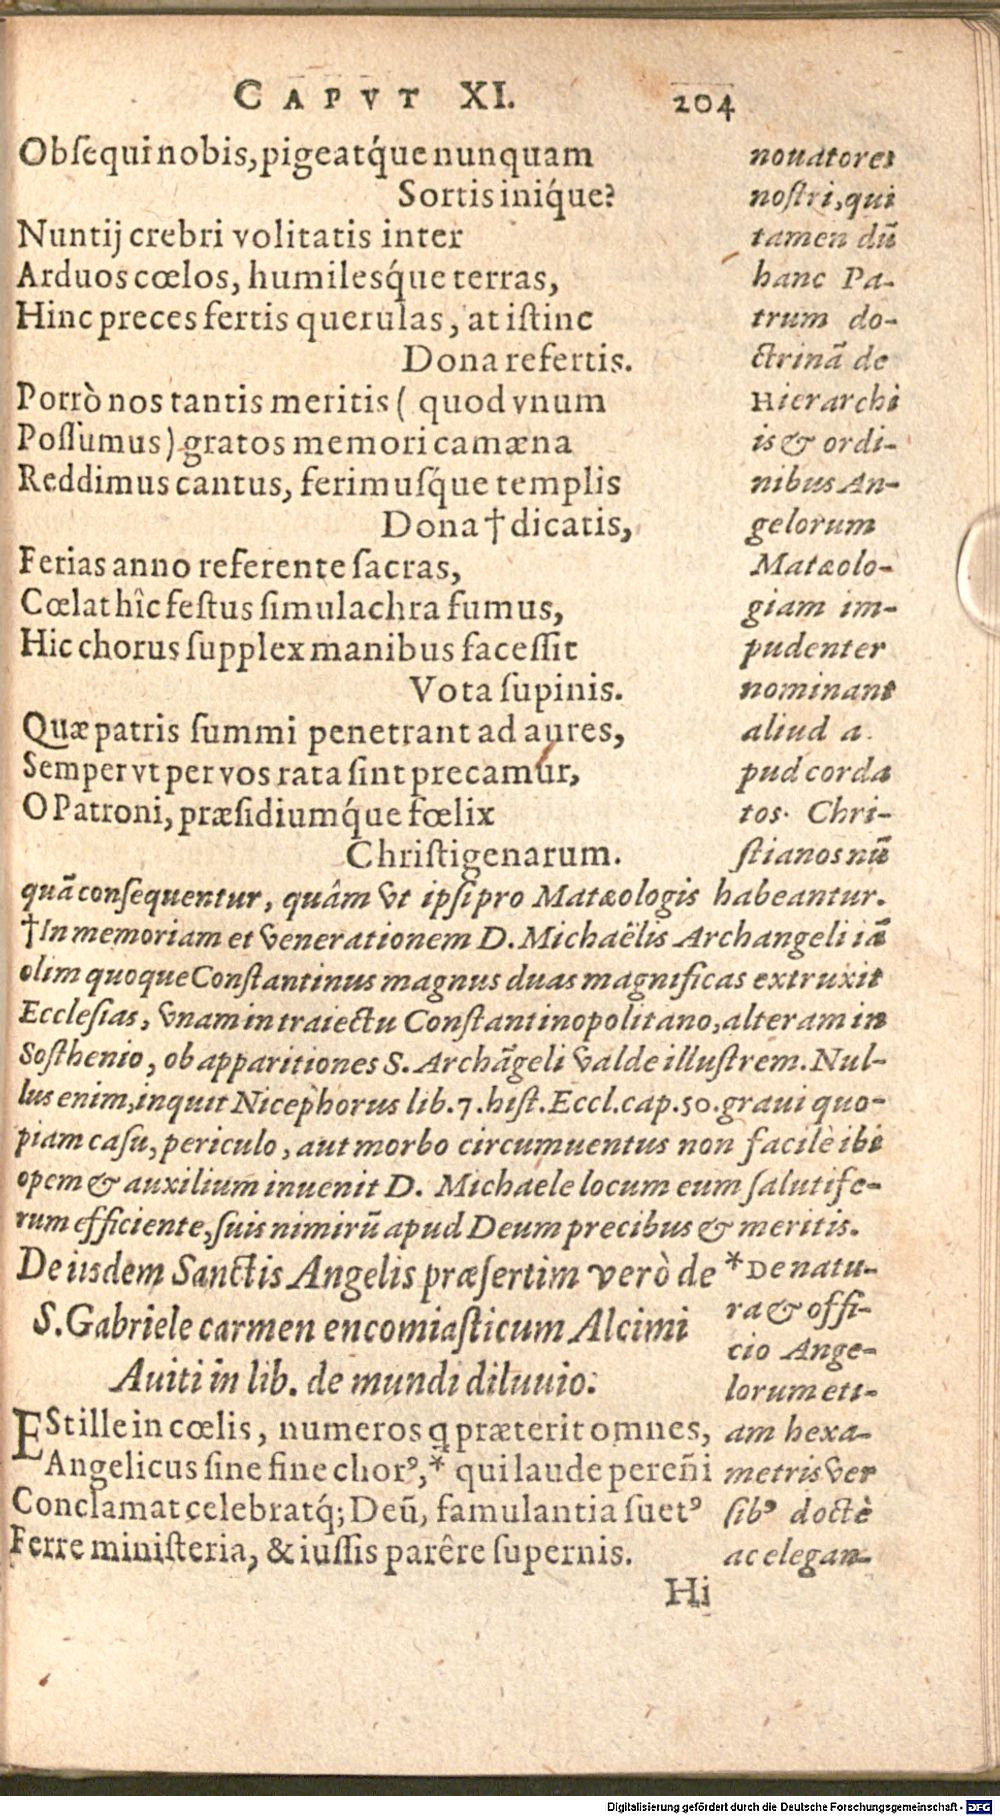 CAPVT XI. 204
Obſequi nobis, pigeatq́ue nunquam
Sortis iniq́ue?
Nuntij crebri volitatis inter
Arduos cœlos, humilesq́ue terras,
Hinc preces fertis querulas, at iſtinc
Dona refertis.
Porrò nos tantis meritis ( quod vnum
Poſſumus) gratos memori camæna
Reddimus cantus, ferimuſq́ue templis
Dona † dicatis,
Ferias anno referente ſacras,
Cœlat hîc feſtus ſimulachra fumus,
Hic chorus ſupplex manibus faceſſit
Vota ſupinis.
Quæ patris ſummi penetrant ad aures,
Semper vt per vos rata ſint precamur,
O Patroni, præſidiumq́ue fœlix
Chriſtigenarum.
nouatores
noſtri, qui
tamen dū
hanc Pa-
trum do-
ctrinā de
Hierarchi
is & ordi-
nibus An-
gelorum
Matæolo-
giam im-
pudenter
nominant
aliud a.
pud corda
tos. Chri-
ſtianos nū
quā conſequentur, quâm vt ipſi pro Matæologis habeantur.
† In memoriam et venerationem D. Michaëlis Archangeli iā
olim quoque Conſtantinus magnus duas magnificas extruxit
Eccleſias, vnam in traiectu Conſtantinopolitano, alteram in
Soſthenio, ob apparitiones S. Archāgeli valde illuſtrem. Nul-
lus enim, inquit Nicephorus lib. 7. hiſt. Eccl. cap. 50. graui quo-
piam caſu, periculo, aut morbo circumuentus non facilè ibi
opem & auxilium inuenit D. Michaele locum eum ſalutife-
rum efficiente, ſuis nimirū apud Deum precibus & meritis.
De iisdem Sanctis Angelis præſertim verò de
S. Gabriele carmen encomiaſticum Alcimi
Auiti in lib. de mundi diluuio.
EStille in cœlis, numeros q̄ præterit omnes,
Angelicus ſine fine chorꝰ,* qui laude pereñi
Conclamat celebratq́; Deū, famulantia ſuetꝰ
Ferre miniſteria, & iuſſis parêre ſupernis.
* De natu-
ra & offi-
cio Ange-
lorum eti-
am hexa-
metris ver
ſibꝰ doctè
ac elegan-
Hi
Digitalisierung gefördert durch die Deutsche Forschungsgemeinschaft - DFG